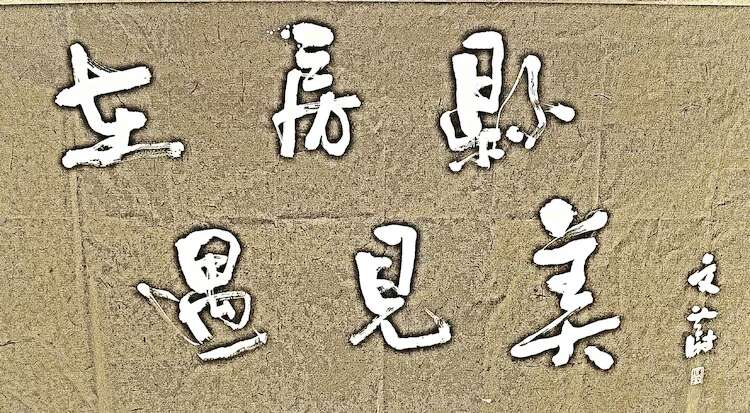 在房縣
遇見美
文蔚